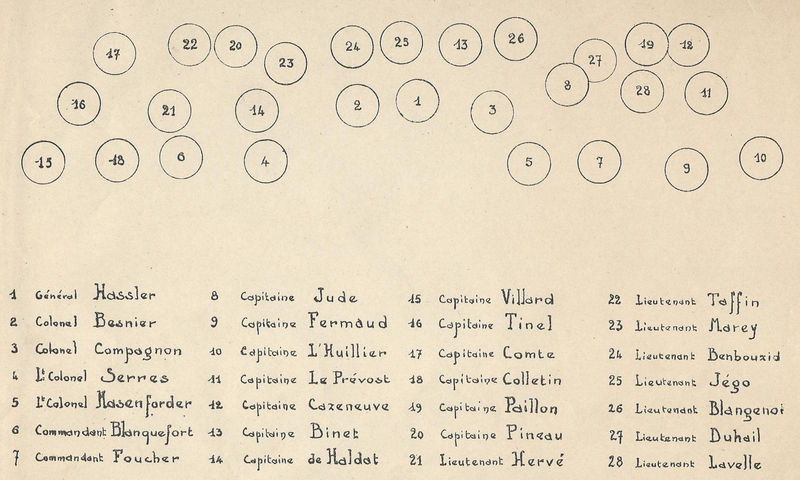 17 22 20 23 24 25 13 26 27 19 12
16 21 14 2 1 3 8 28 11
15 18 6 4 5 7 9 10
1 Général Hassler
2 Colonel Besnier
3 Colonel Compagnon
4 Lt Colonel Serres
5 Lt Colonel Masenforder
6 Commandant Blanquefort
7 Commandant Foucher
8 Capitaine Jude
9 Capitaine Fermaud
10 Capitaine L'Huillier
11 Capitaine Le Prévost
12 Capitaine Cazeneuve
13 Capitaine Binet
14 Capitaine de Haldat
15 Capitaine Villard
16 Capitaine Tinel
17 Capitaine Comte
18 Capitaine Colletin
19 Capitaine Paillon
20 Capitaine Pineau
21 Lieutenant Hervé
22 Lieutenant Taffin
23 Lieutenant Marey
24 Lieutenant Benbouzid
25 Lieutenant Jégo
26 Lieutenant Blangenoi
27 Lieutenant Duhail
28 Lieutenant Lavelle